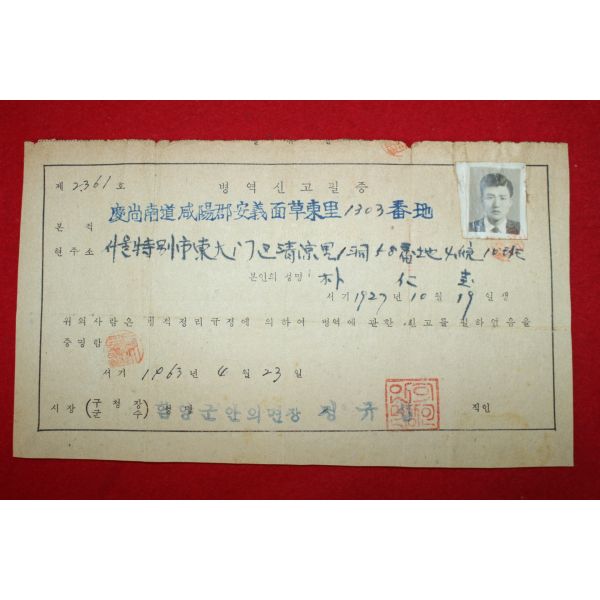 제 2361 호
병역신고필증
본적 慶尚南道咸陽郡安義面草東里1303番地
현주소 서울特別市東大门区清凉里1洞58番地4統10班
본인의 성명 朴仁圭
서기 1927년 10월 19일생
위의 사람은 병적정리규정에 의하여 병역에 관한 신고를 필하였음을
증명함
서기 1963년 4월 23일
시장 (구청장 군수) 함양군안의면장 정규 직인